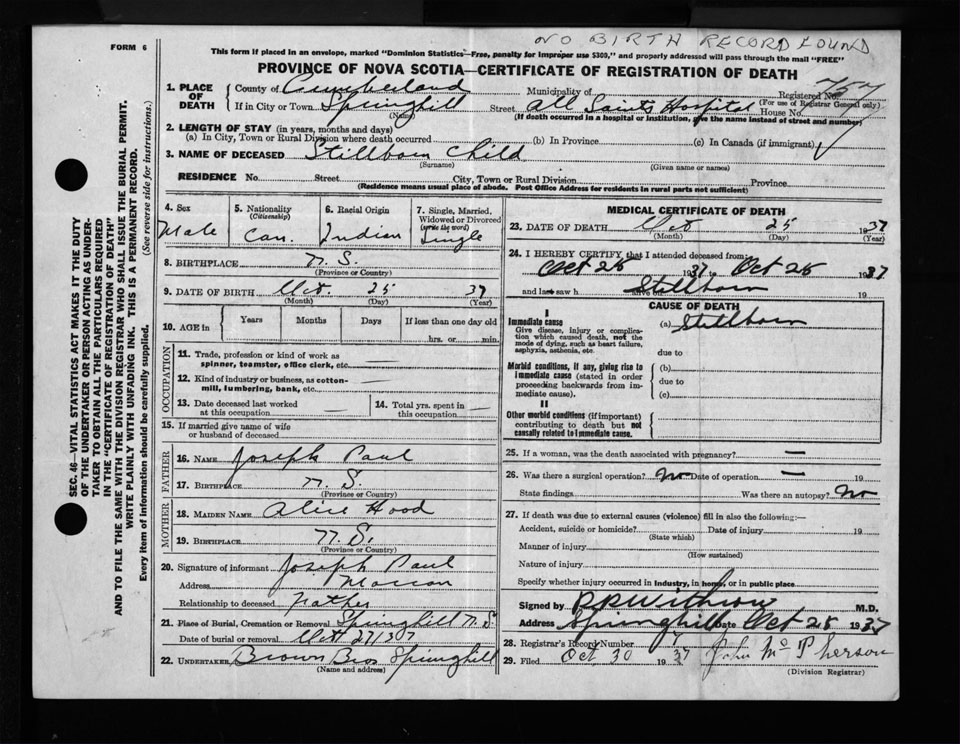 NO BIRTH RECORD FOUND
FORM 6
This form if placed in an envelope, marked "Dominion Statistics—Free, penalty for improper use $300," and properly addressed will pass through the mail "FREE"
PROVINCE OF NOVA SCOTIA—CERTIFICATE OF REGISTRATION OF DEATH
1. PLACE OF DEATH
County of Cumberland Municipality of Registered No. 757
(For use of Registrar General only)
If in City or Town Springhill Street All Saints Hospital House No.
(Name) (If death occurred in a hospital or institution, give the name instead of street and number)
2. LENGTH OF STAY (in years, months and days)
(a) In City, Town or Rural Division where death occurred (b) In Province (c) In Canada (if immigrant)
3. NAME OF DECEASED Stillborn Child
(Surname) (Given name or names)
RESIDENCE No. Street City, Town or Rural Division Province
(Residence means usual place of abode. Post Office Address for residents in rural parts not sufficient)
4. Sex
Male
5. Nationality
(Citizenship)
Can.
6. Racial Origin
Indian
7. Single, Married,
Widowed or Divorced
(write the word)
Single
8. BIRTHPLACE N. S.
(Province or Country)
9. DATE OF BIRTH Oct. 25 37
(Month) (Day) (Year)
10. AGE in Years Months Days If less than one day old
hrs. or min.
OCCUPATION
11. Trade, profession or kind of work as
spinner, teamster, office clerk, etc. —
12. Kind of industry or business, as cotton-
mill, lumbering, bank, etc. —
13. Date deceased last worked
at this occupation —
14. Total yrs. spent in
this occupation —
15. If married give name of wife
or husband of deceased
FATHER
16. NAME Joseph Paul
17. BIRTHPLACE N. S.
(Province or Country)
MOTHER
18. MAIDEN NAME Alice Hood
19. BIRTHPLACE N. S.
(Province or Country)
20. Signature of informant Joseph Paul
Address Maccan
Relationship to deceased Father
21. Place of Burial, Cremation or Removal Springhill N. S.
Date of burial or removal Oct 27/37
22. UNDERTAKER Brown Bros Springhill
(Name and address)
MEDICAL CERTIFICATE OF DEATH
23. DATE OF DEATH Oct 25 1937
(Month) (Day) (Year)
24. I HEREBY CERTIFY that I attended deceased from:
Oct 25 1937 to Oct 25 1937
and last saw h alive on Stillborn 19
CAUSE OF DEATH
I
Immediate cause
Give disease, injury or complica-
tion which caused death, not the
mode of dying, such as heart failure,
asphyxia, asthenia, etc.
(a) Stillborn
due to
Morbid conditions, if any, giving rise to
immediate cause (stated in order
proceeding backwards from im-
mediate cause).
(b)
due to
(c)
II
Other morbid conditions (if important)
contributing to death but not
causally related to immediate cause.
25. If a woman, was the death associated with pregnancy? —
26. Was there a surgical operation? No Date of operation — 19
State findings Was there an autopsy? No
27. If death was due to external causes (violence) fill in also the following:—
Accident, suicide or homicide? Date of injury 19
(State which)
Manner of injury
(How sustained)
Nature of injury
Specify whether injury occurred in industry, in home, or in public place
Signed by R P Withrow M.D.
Address Springhill Date Oct 28 1937
28. Registrar's Record Number
29. Filed Oct 30 1937 John McPherson
(Division Registrar)
SEC. 46—VITAL STATISTICS ACT MAKES IT THE DUTY
OF THE UNDERTAKER OR PERSON ACTING AS UNDER-
TAKER TO OBTAIN ALL THE PARTICULARS REQUIRED
IN THE "CERTIFICATE OF REGISTRATION OF DEATH"
AND TO FILE THE SAME WITH THE DIVISION REGISTRAR WHO SHALL ISSUE THE BURIAL PERMIT.
WRITE PLAINLY WITH UNFADING INK. THIS IS A PERMANENT RECORD.
Every item of information should be carefully supplied. (See reverse side for instructions.)